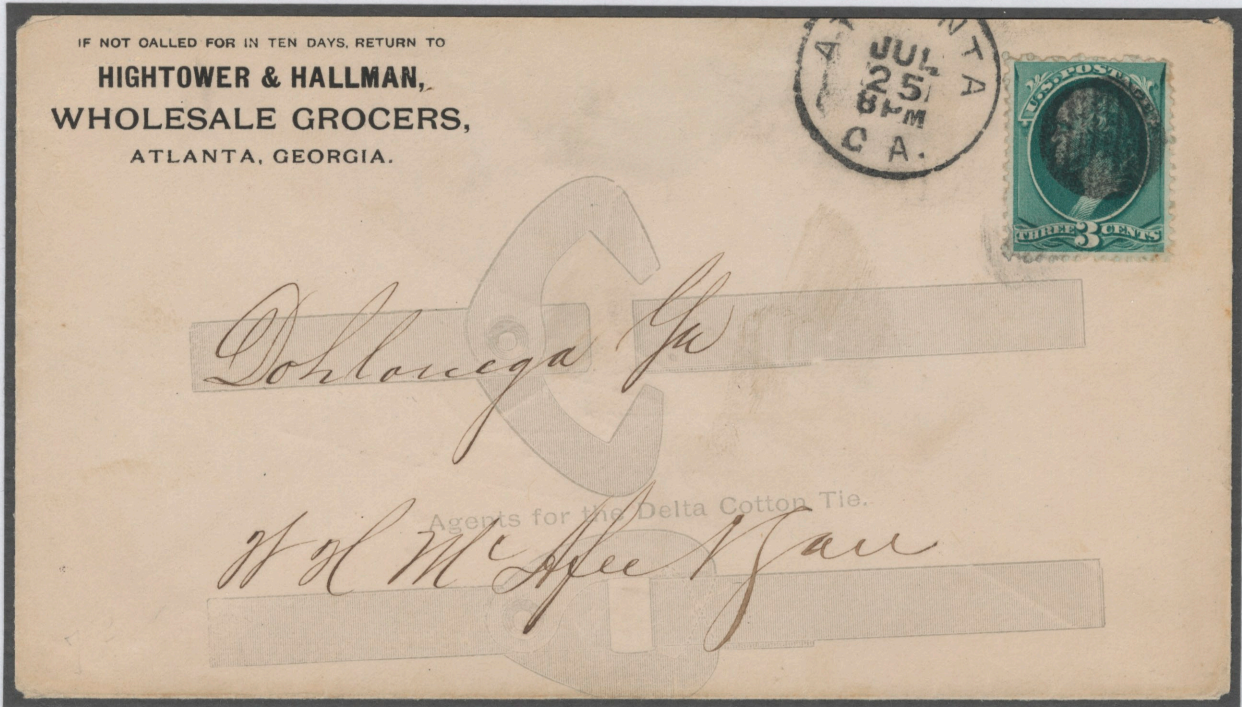 IF NOT CALLED FOR IN TEN DAYS, RETURN TO
HIGHTOWER & HALLMAN,
WHOLESALE GROCERS,
ATLANTA, GEORGIA.
ATLANTA
JUL
25
6 PM
GA.
U.S. POSTAGE
THREE 3 CENTS
Dohlonega Ga
Agents for the Delta Cotton Tie.
W H Mc Afee